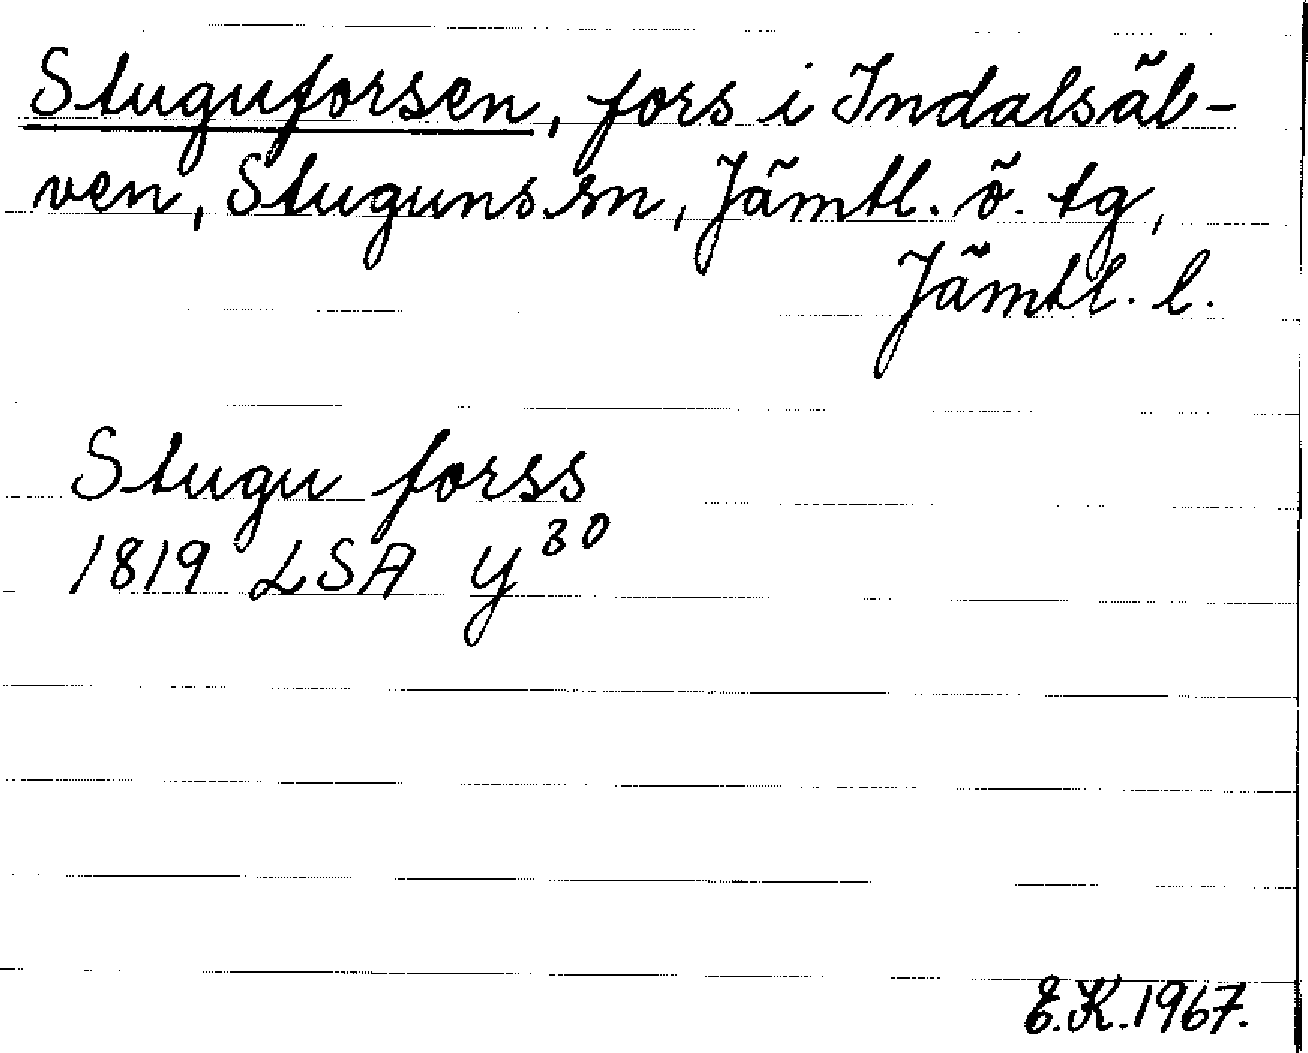 Stuguforsen, fors i Indalsäl-
ven, Stuguns sn, Jämtl. ö. tg,
Jämtl. l.
Stugu forss
1819 LSA Y³⁰
E.K.1967.